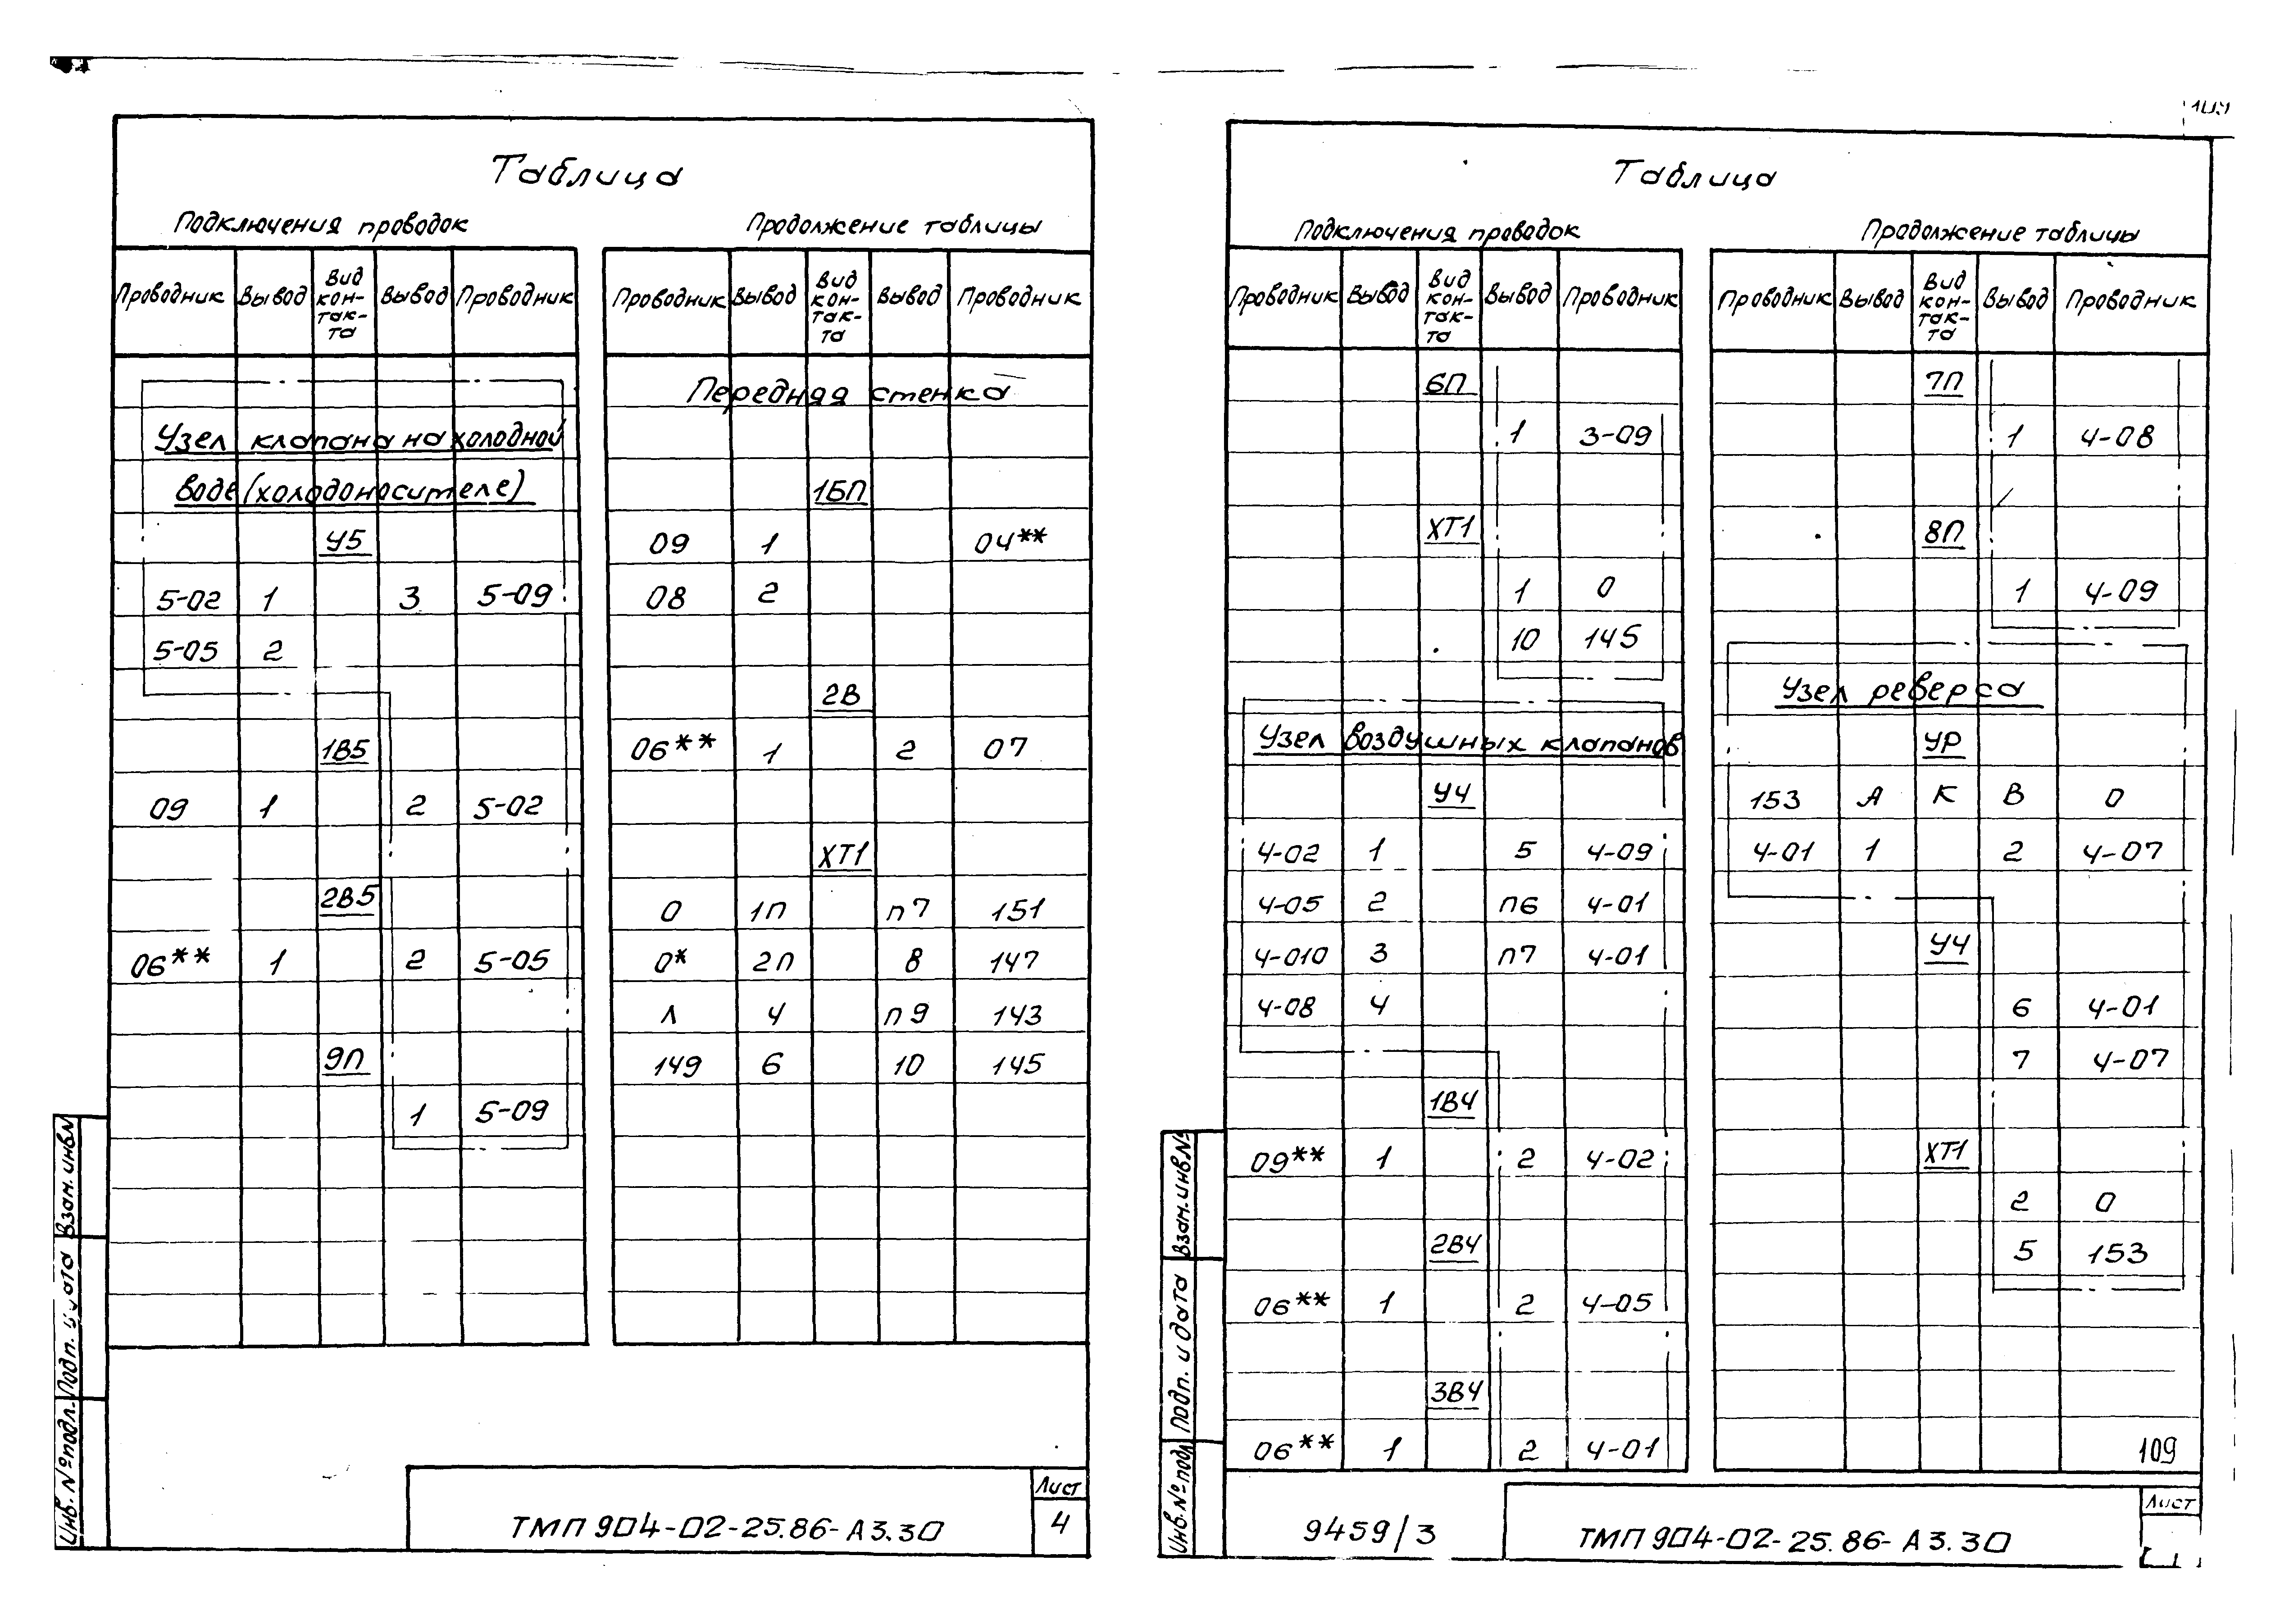 Таблица
Подключения проводок
Проводник Вывод Вид кон-так-та Вывод Проводник
Узел клапана на холодной
воде (холодоносителе)
У5
5-02 1 3 5-09
5-05 2
1В5
09 1 2 5-02
2В5
06** 1 2 5-05
9П
1 5-09
Продолжение таблицы
Проводник Вывод Вид кон-так-та Вывод Проводник
Передняя стенка
1БП
09 1 04**
08 2
2В
06** 1 2 07
ХТ1
0 1П п7 151
0* 2П 8 147
Л 4 п9 143
149 6 10 145
Взам. инв.№
Подп. и дата
Инв. №подл.
ТМП 904-02-25.86-А3.30
Лист
4
Таблица
Подключения проводок
Проводник Вывод Вид кон-так-та Вывод Проводник
6П
1 3-09
ХТ1
1 0
10 145
Узел воздушных клапанов
У4
4-02 1 5 4-09
4-05 2 п6 4-01
4-010 3 п7 4-01
4-08 4
1В4
09** 1 2 4-02
2В4
06** 1 2 4-05
3В4
06** 1 2 4-01
Продолжение таблицы
Проводник Вывод Вид кон-так-та Вывод Проводник
7П
1 4-08
8П
1 4-09
Узел реверса
УР
153 А К В 0
4-01 1 2 4-07
У4
6 4-01
7 4-07
ХТ1
2 0
5 153
109
Взам. инв.№
Подп. и дата
Инв.№ подл
9459/3
ТМП 904-02-25.86-А3.30
Лист